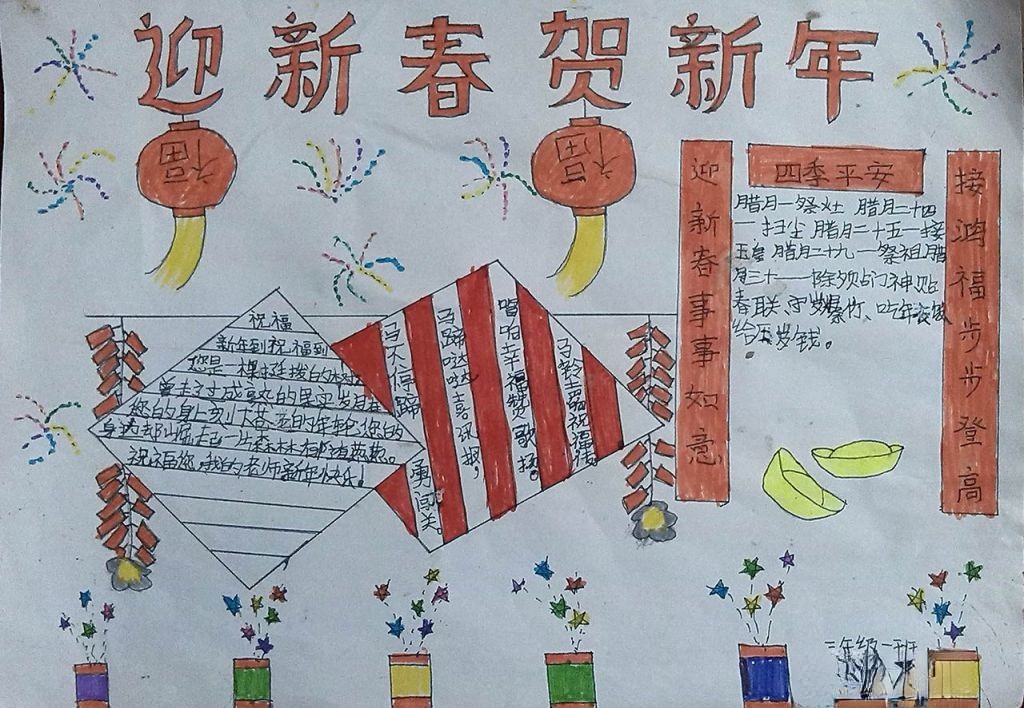 迎新春贺新年
福
福
祝福
新年到祝福到
您是一棵挺拔的
曾去过成熟的果实岁月在
您的身上刻
身边却崛起一片森林
祝福您,我的老师新年快乐!
马不停蹄
勇闯关。
马蹄哒哒喜讯报,
唱响幸福赞歌扬。
马铃
祝福
迎新春事事如意
四季平安
腊月一祭灶 腊月二十四
一扫尘 腊月二十五一接
玉皇 腊月二十九一祭祖腊
月三十一除
门神贴
春联 守岁爆竹、吃年夜饭
给压岁钱。
接鸿福步步登高
年级一班